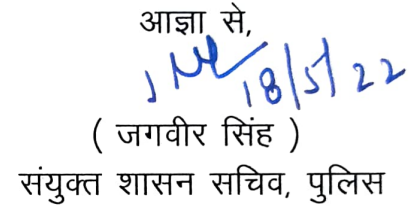 आज्ञा से,
18/5/22
( जगवीर सिंह )
संयुक्त शासन सचिव, पुलिस